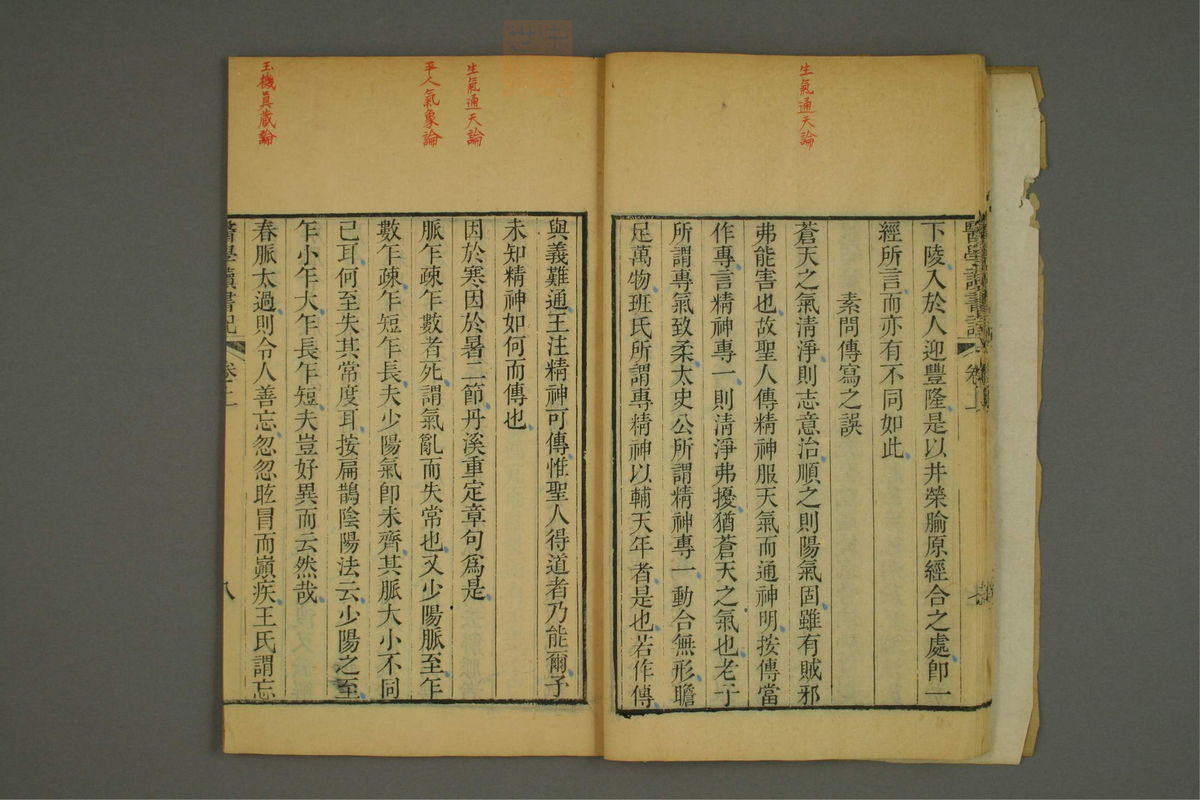 生氣通天論
醫學讀書記
卷上
下陵入於人迎豐隆是以井榮腧原經合之處卽一
經所言而亦有不同如此
素問傳寫之誤
蒼天之氣清淨則志意治順之則陽氣固雖有賊邪
弗能害也故聖人傳精神服天氣而通神明按傳當
作專言精神專一則清淨弗擾猶蒼天之氣也老子
所謂專氣致柔太史公所謂精神專一動合無形贍
足萬物班氏所謂專精神以輔天年者是也若作傳
生氣通天論
平人氣象論
玉機眞藏論
與義難通王注精神可傳惟聖人得道者乃能爾予
未知精神如何而傳也
因於寒因於暑二節丹溪重定章句爲是
脈乍疎乍數者死謂氣亂而失常也又少陽脈至乍
數乍疎乍短乍長夫少陽氣卽未齊其脈大小不同
已耳何至失其常度耳按扁鵲陰陽法云少陽之至
乍小乍大乍長乍短夫豈好異而云然哉
春脈太過則令人善忘忽忽眩冒而巔疾王氏謂忘
醫學讀書記
卷上
八